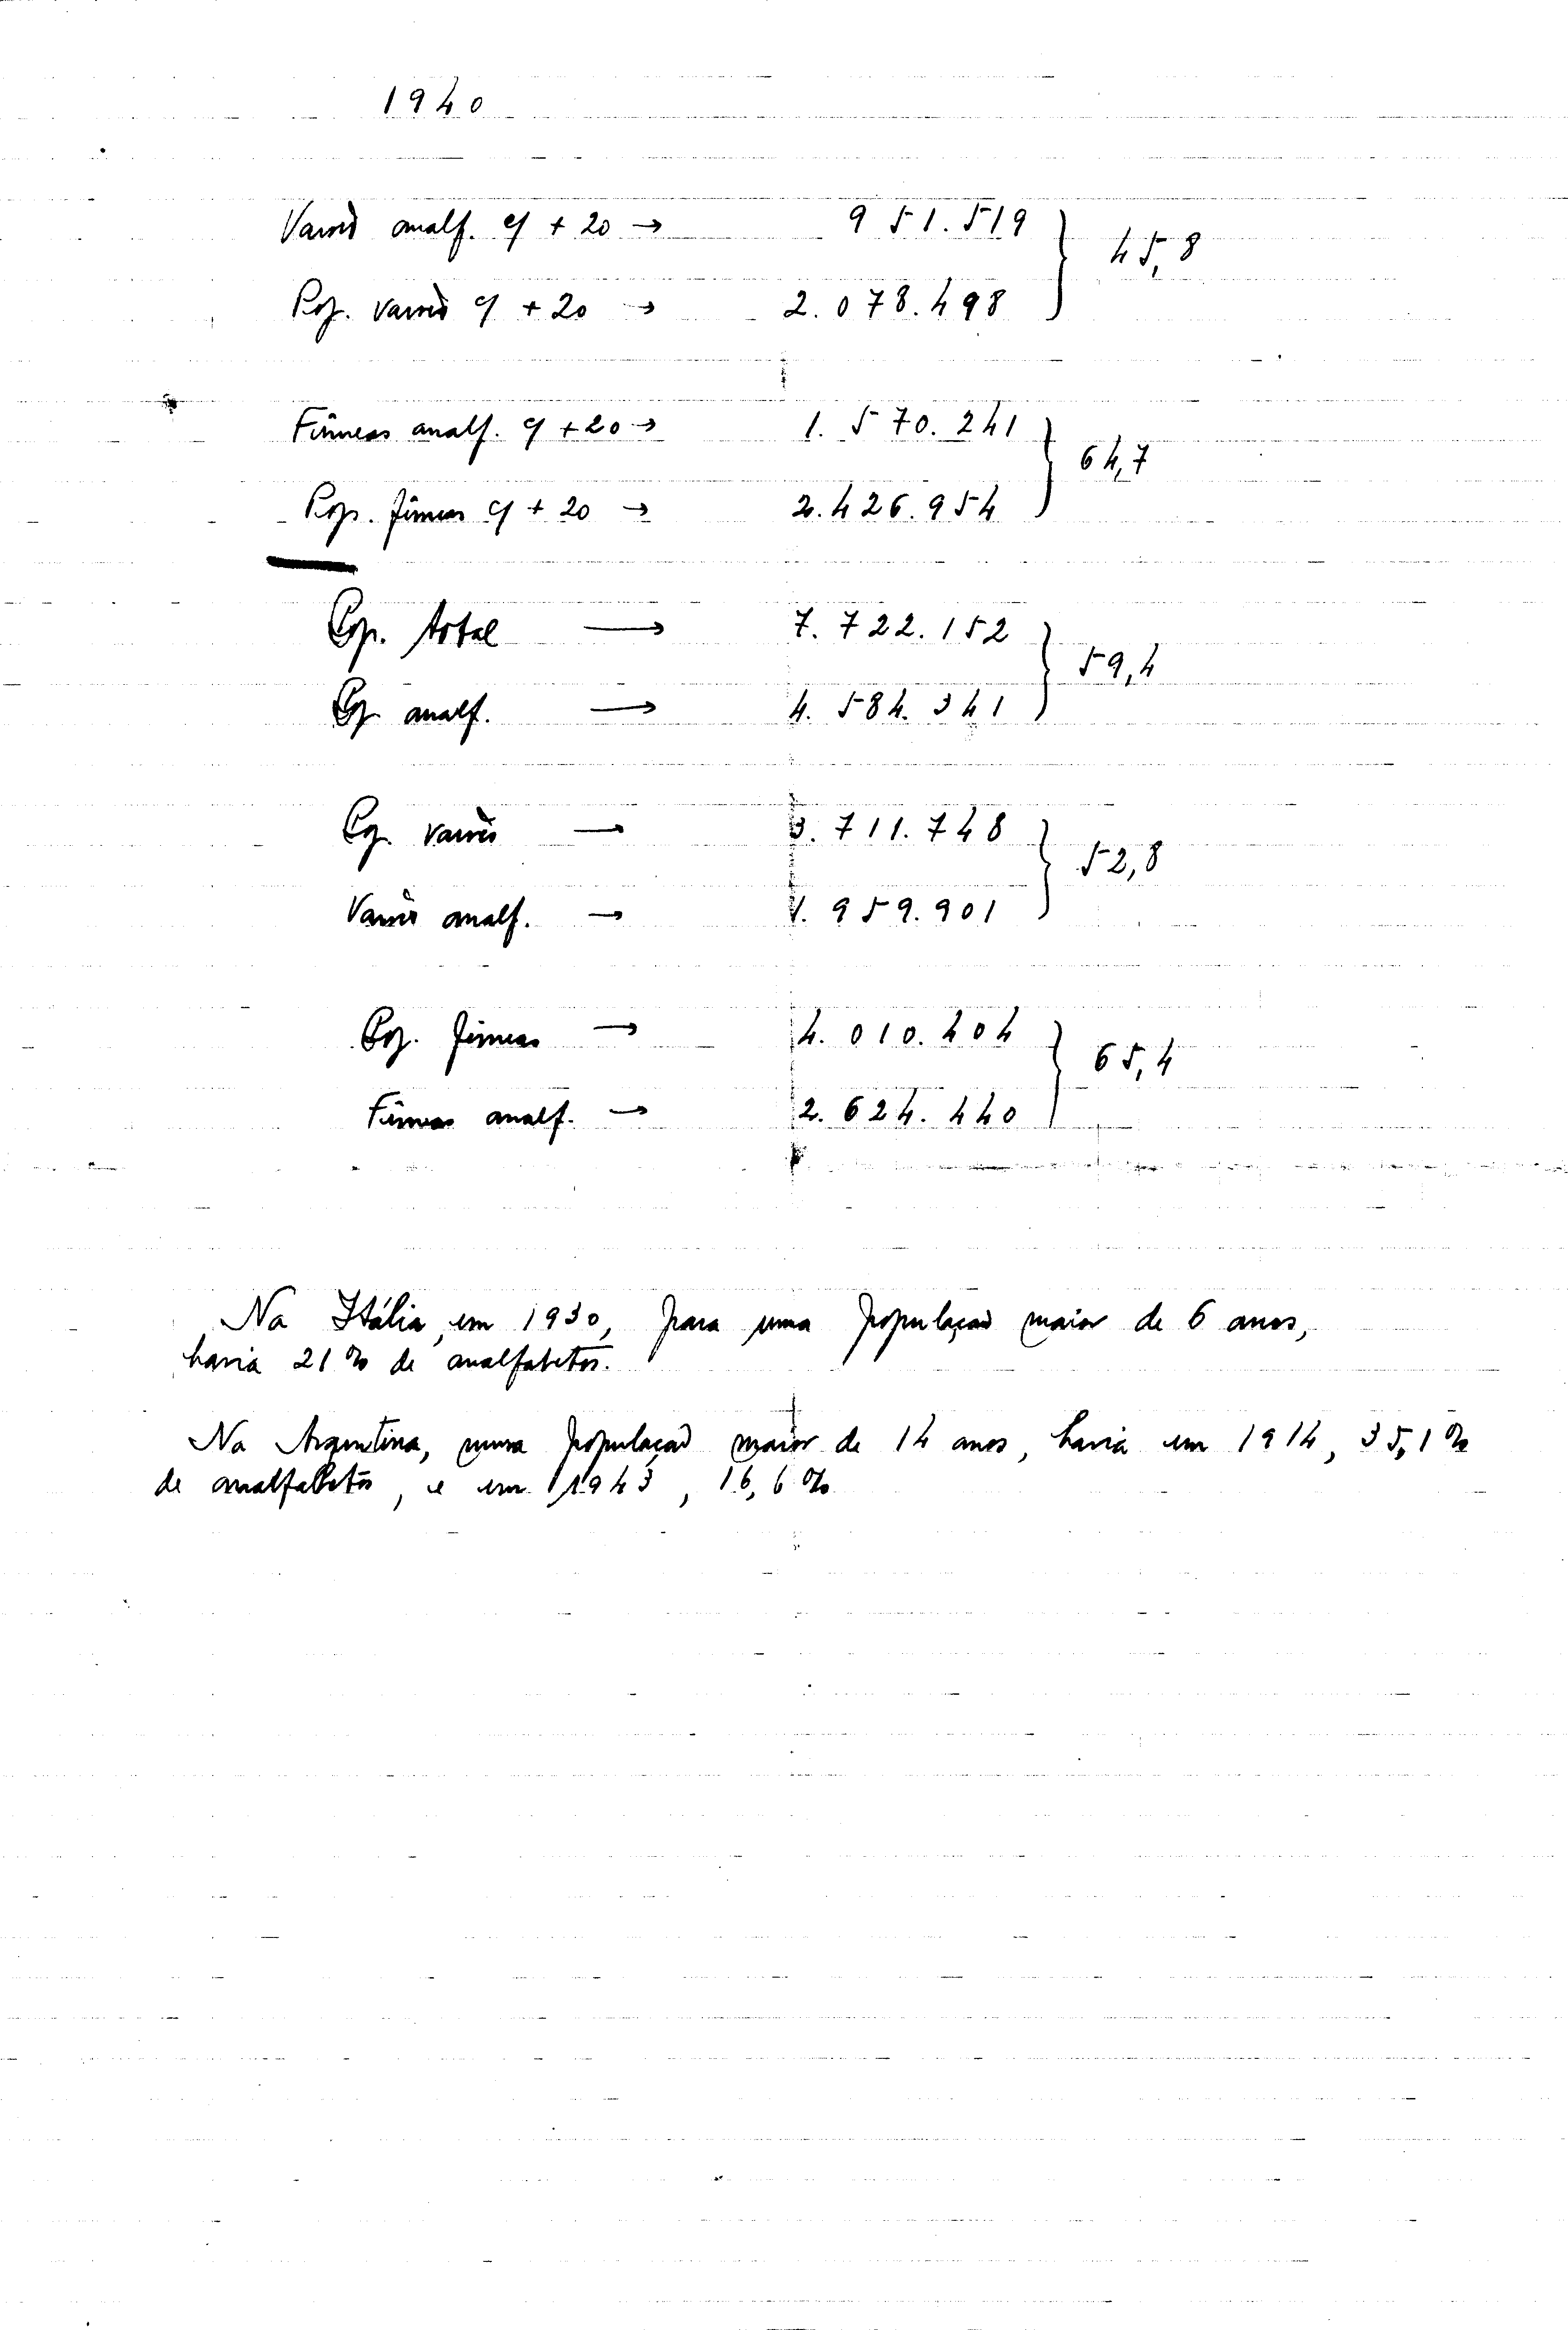 1940
Varões analf. c/ + 20 → 951.519
45,8
Pop. varões c/ + 20 → 2.078.498
Fêmeas analf. c/ +20 → 1.570.241
64,7
Pop. fêmeas c/ + 20 → 2.426.954
Pop. total → 7.722.152
59,4
Pop. analf. → 4.584.341
Pop. varões → 3.711.748
52,8
Varões analf. → 1.959.901
Pop. fêmeas → 4.010.404
65,4
Fêmeas analf. → 2.624.440
Na Itália, em 1930, para uma população maior de 6 anos,
havia 21% de analfabetos.
Na Argentina, numa população maior de 14 anos, havia em 1914, 35,1%
de analfabetos, e em 1943, 16,6%